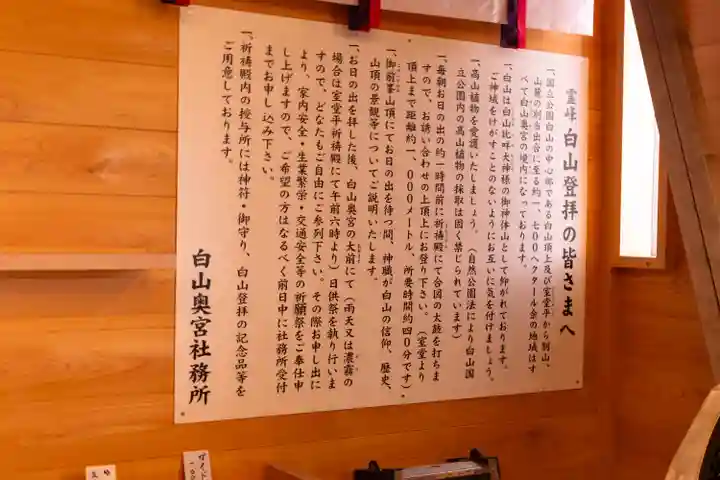 霊峰白山登拝の皆さまへ
一、国立公園白山の中心部である白山頂上及び室堂平から別山、
山麓の別当出合に至る約一、七〇〇ヘクタール余の地域はす
べて白山奥宮の境内になっております。
一、白山は白山比咩大神様の御神体山として仰がれております。
ご神域をけがすことのないようにお互いに気を付けましょう。
一、高山植物を愛護いたしましょう。（自然公園法により白山国
立公園内の高山植物の採取は固く禁じられています）
一、毎朝お日の出の約一時間前に祈祷殿にて合図の太鼓を打ちま
すので、お誘い合わせの上頂上にお登り下さい。（室堂より
頂上まで距離約一、〇〇〇メートル、所要時間約四〇分です）
一、御前峯山頂にてお日の出を待つ間、神職が白山の信仰、歴史、
山頂の景観等についてご説明いたします。
一、お日の出を拝した後、白山奥宮の大前にて（雨天又は濃霧の
場合は室堂平祈祷殿にて午前六時より）日供祭を執り行いま
すので、どなたもご自由にご参列下さい。その際お申し出に
より、家内安全・生業繁栄・交通安全等の祈願祭をご奉仕申
し上げますので、ご希望の方はなるべく前日中に社務所受付
までお申し込み下さい。
一、祈祷殿内の授与所には神符・御守り、白山登拝の記念品等を
ご用意しております。
白山奥宮社務所